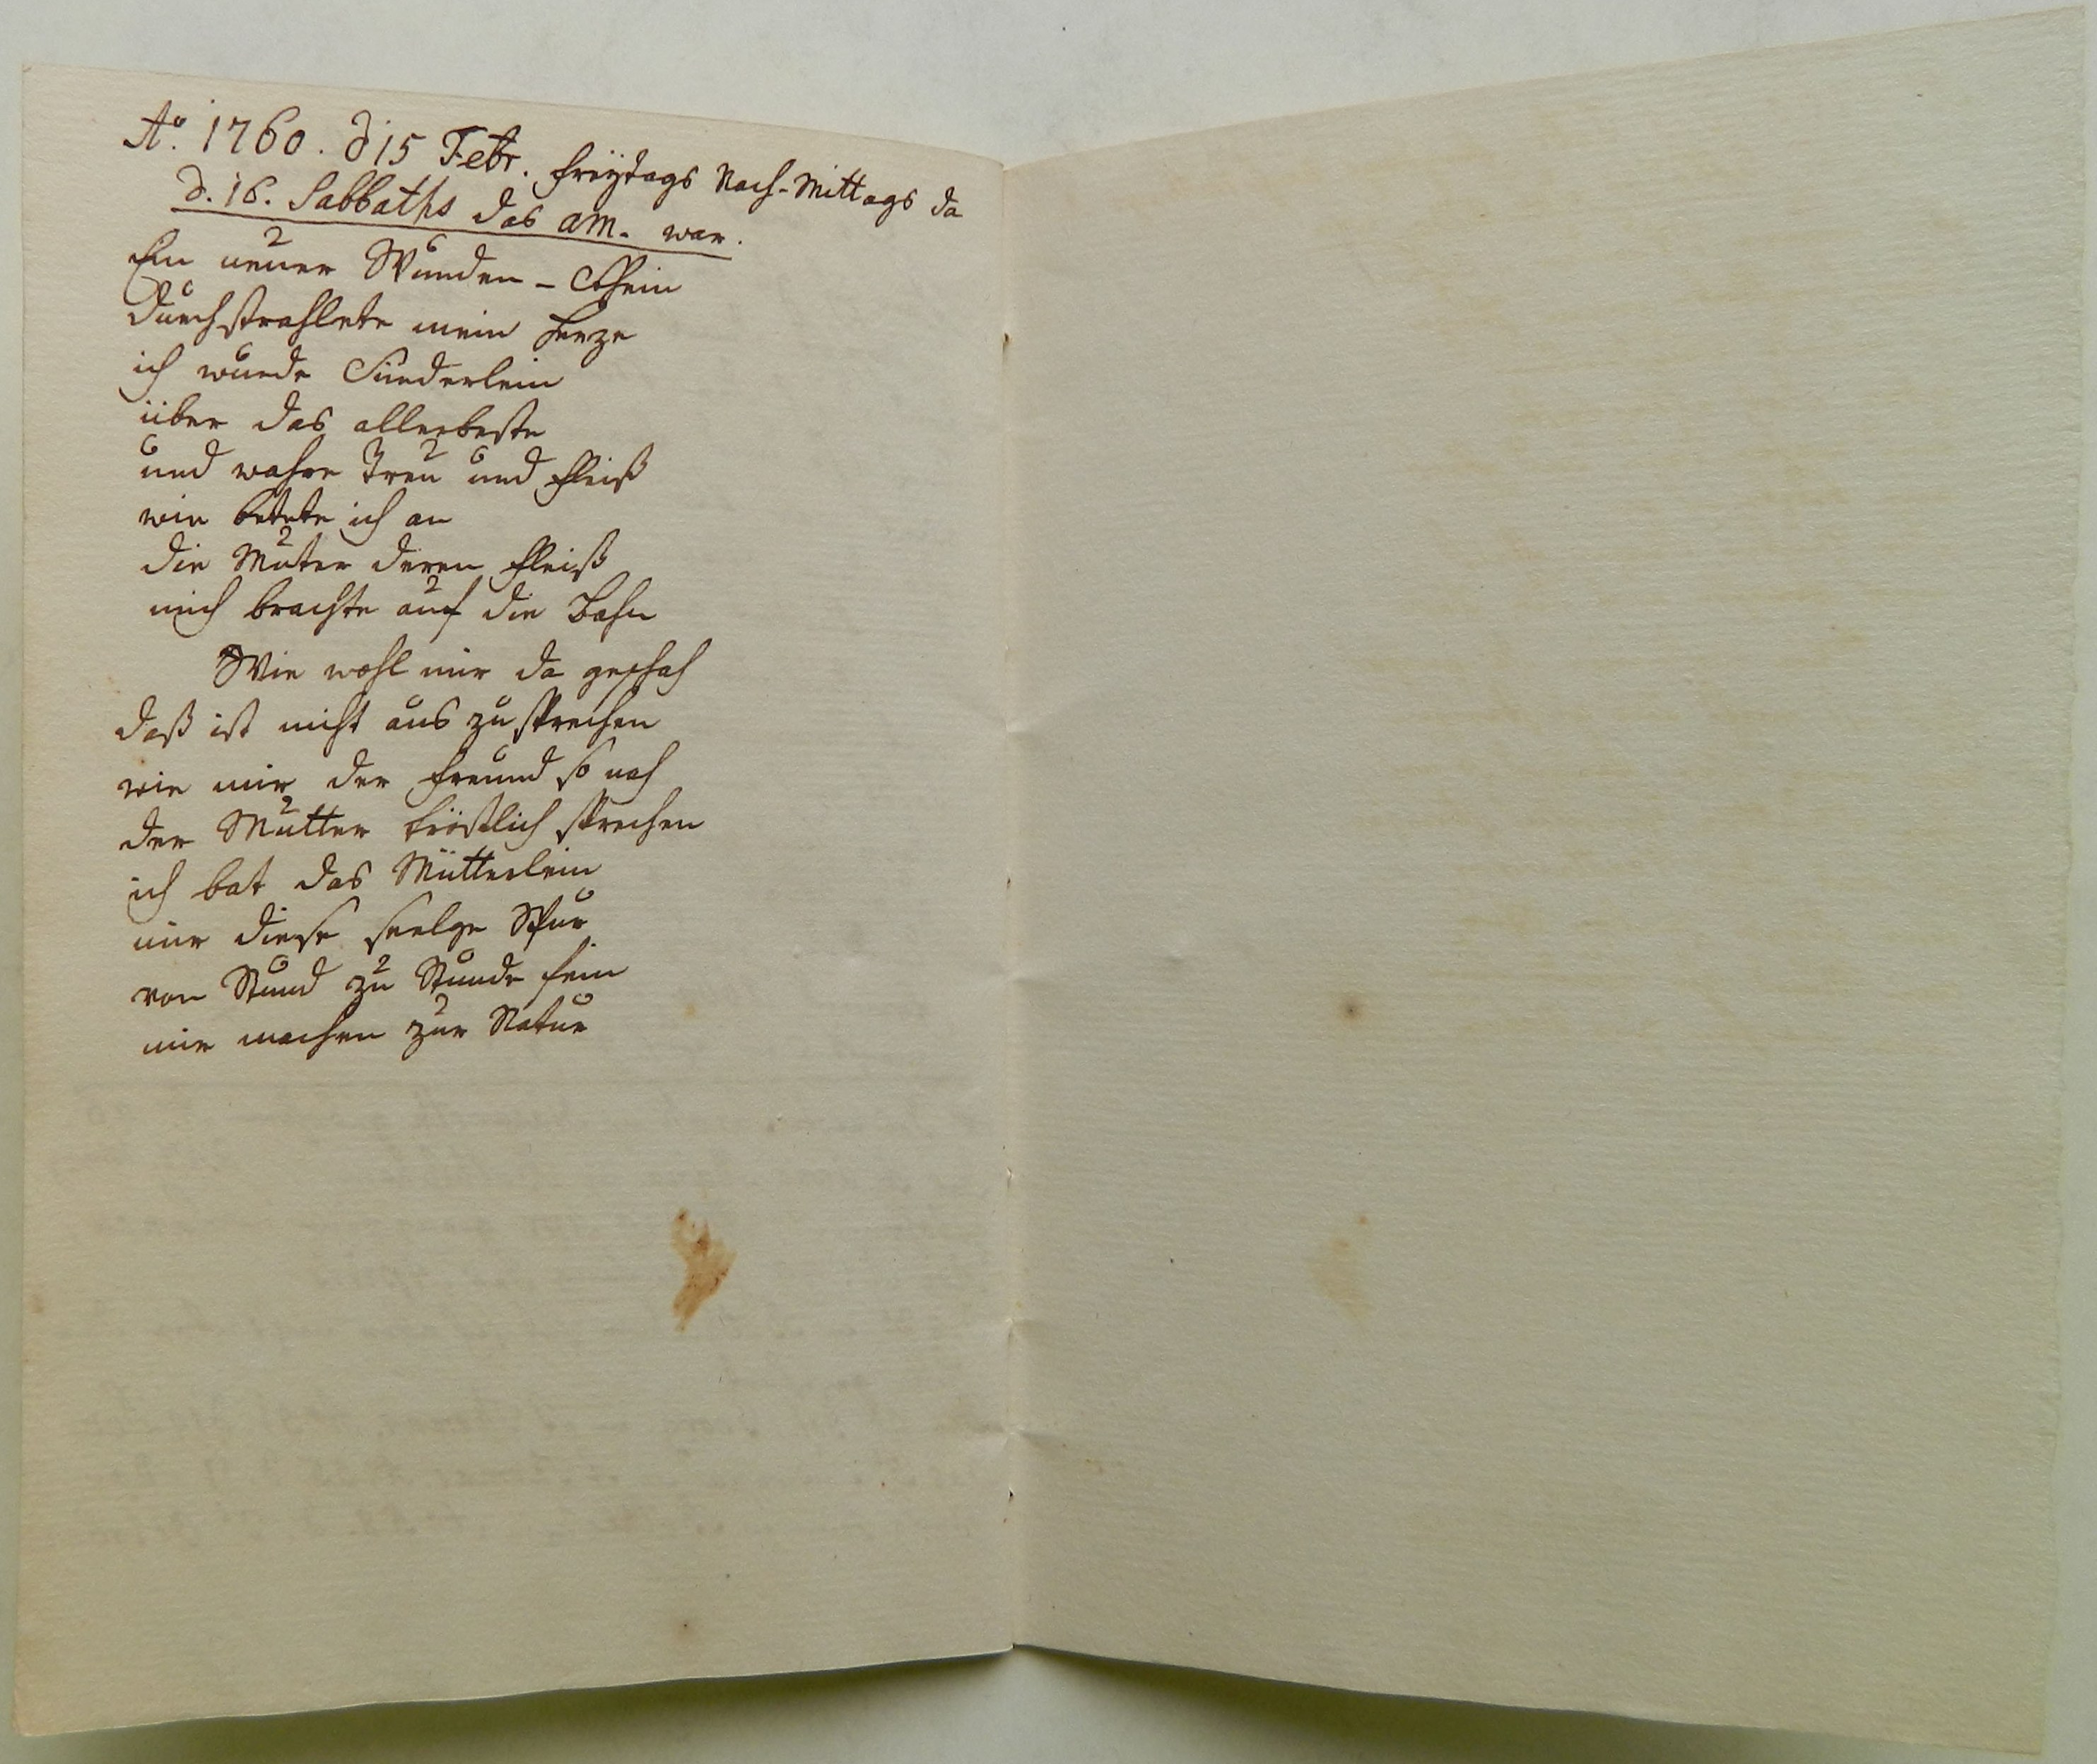 Ao. 1760. d 15 Febr. Freÿtags Nach-Mittags da
d. 16. Sabbaths das AM. war.
Ein neuer Wunden-Schein
durchstrahlete mein Herze
ich wurde Sünderlein
über das allerbeste
und wahre Treu und Fleiß
wie betete ich an
die Muter deren Fleiß
mich brachte auf die Bahn
Wie wohl mir da geschah
daß ist nicht aus zu sprechen
wie mir der Freund so nah
der Mutter tröstlich sprechen
ich bat das Mütterlein
mir diese seelge Spur
von Stund zu Stunde fein
mir machen zur Natur